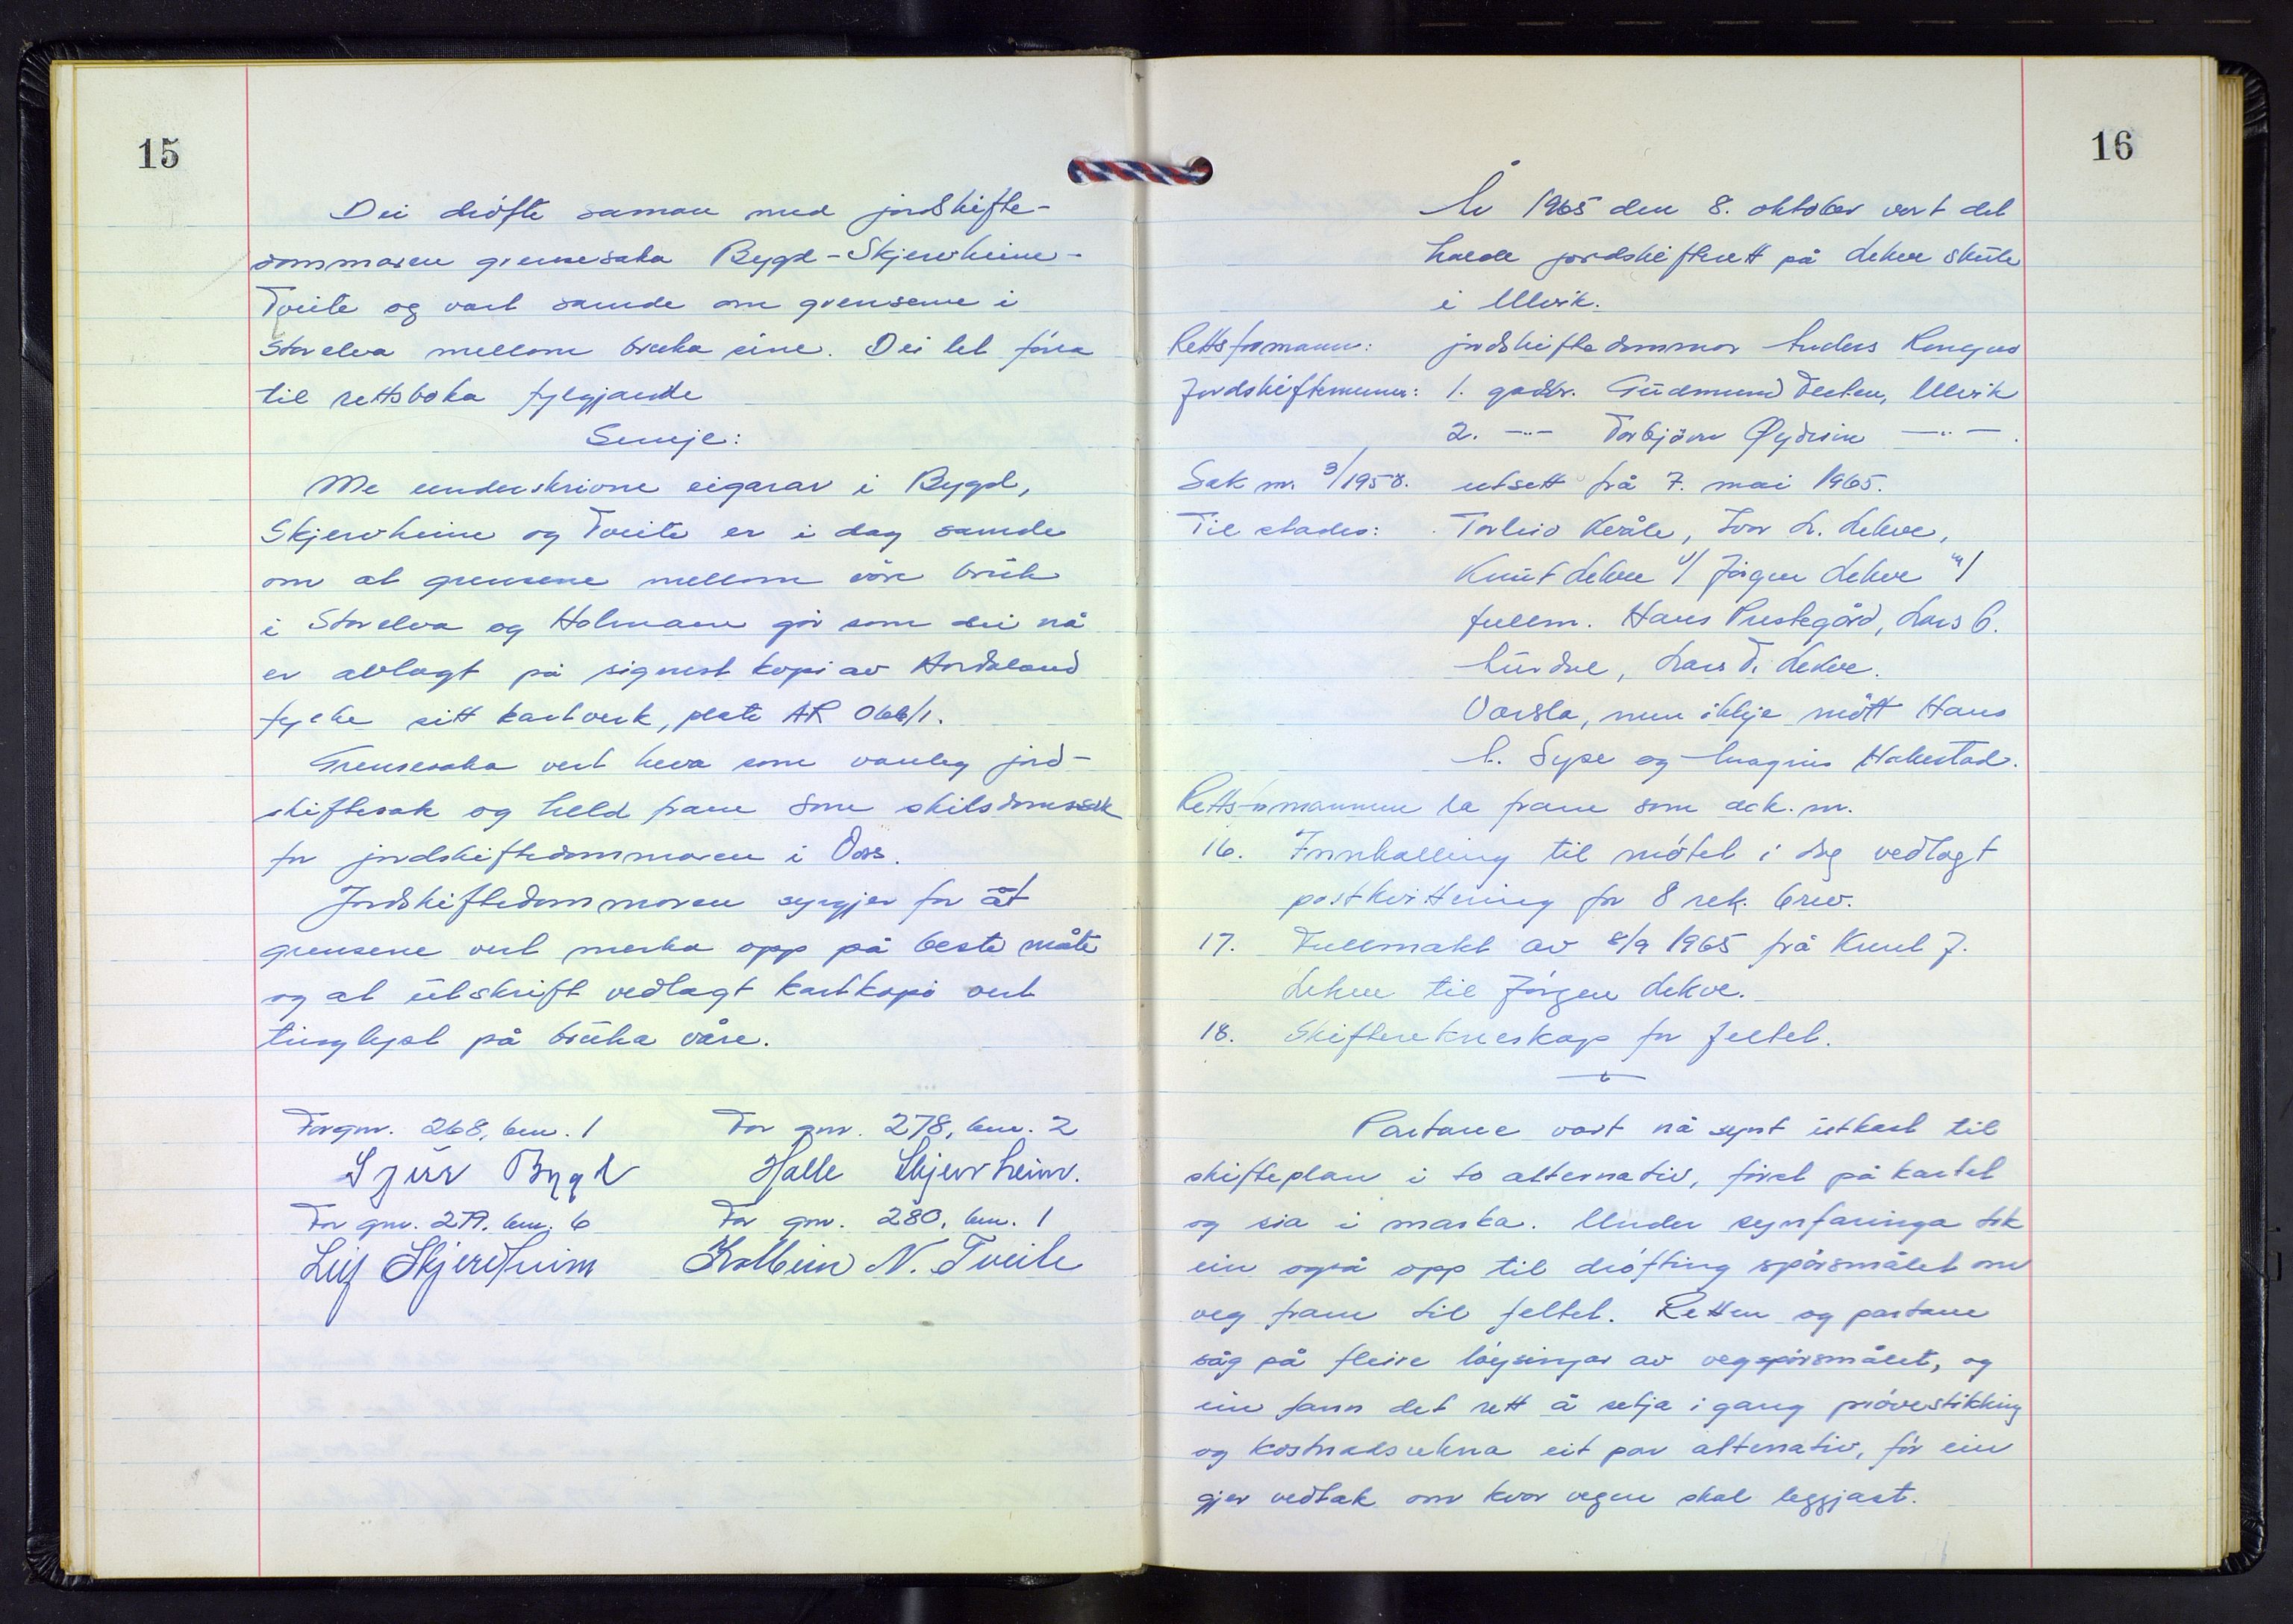 15
Dei drøfte saman med jordskifte-
dommaren grensesaka Bygd-Skjervheim-
Tveite og vart samde om grensene i
Storelva mellom bruka sine. Dei let føra
til rettsboka fylgjande
Semje:
Me underskrivne eigarar i Bygd,
Skjervheim og Tveite er i dag samde
om at grensene mellom våre bruk
i Storelva og Holmane går som dei nå
er avlagt på signert kopi av Hordaland
fylke sitt kartverk, plate AR 066/1.
Grensesaka vert heva som vanleg jord-
skiftesak og held fram som skilsdomssak
for jordskiftedommaren i Voss.
Jordskiftedommaren syrgjer for at
grensene vert merka opp på beste måte
og at utskrift vedlagt kartkopi vert
tinglyst på bruka våre.
For gnr. 268, bnr. 1 For gnr. 278, bnr. 2
Sjur Bygd Halle Skjervheim.
For gnr. 279, bnr. 6 For gnr. 280, bnr. 1
Leif Skjervheim Kolbein N. Tveite
16
År 1965 den 8. oktober vart det
halde jordskifterett på Lekve skule
i Ulvik.
Rettsformann: jordskiftedommar Anders Rongved
Jordskiftemenn: 1. gardbr. Gudmund Tveten, Ulvik
2. -"- Torbjørn Øydvin -"-.
Sak nr. 3/1958. utsett frå 7. mai 1965.
Til stades: Torleiv Kvåle, Ivar L. Lekve,
Knut Lekve v/ Jørgen Lekve m/
fullm. Hans Prestegård, Lars B.
Lars T. Lekve.
Varsla, men ikkje møtt Hans
A. Sype og Magnus Hakestad.
Rettsformannen la fram som dok. nr.
16. Innkalling til møtet i dag vedlagt
postkvittering for 8 rek. brev.
17. Fullmakt av 8/9 1965 frå Knut J.
Lekve til Jørgen Lekve.
18. Skifterekneskap for feltet.
Partane vart nå synt utkast til
skifteplan i to alternativ, først på kartet
og sia i marka. Under synfaringa tok
ein også opp til drøfting spørsmålet om
veg fram til feltet. Retten og partane
såg på fleire løysingar av vegspørsmålet, og
ein fann det rett å setja i gang prøvestikking
og kostnadsrekna eit par alternativ, før ein
gjer vedtak om kvar vegen skal leggjast.